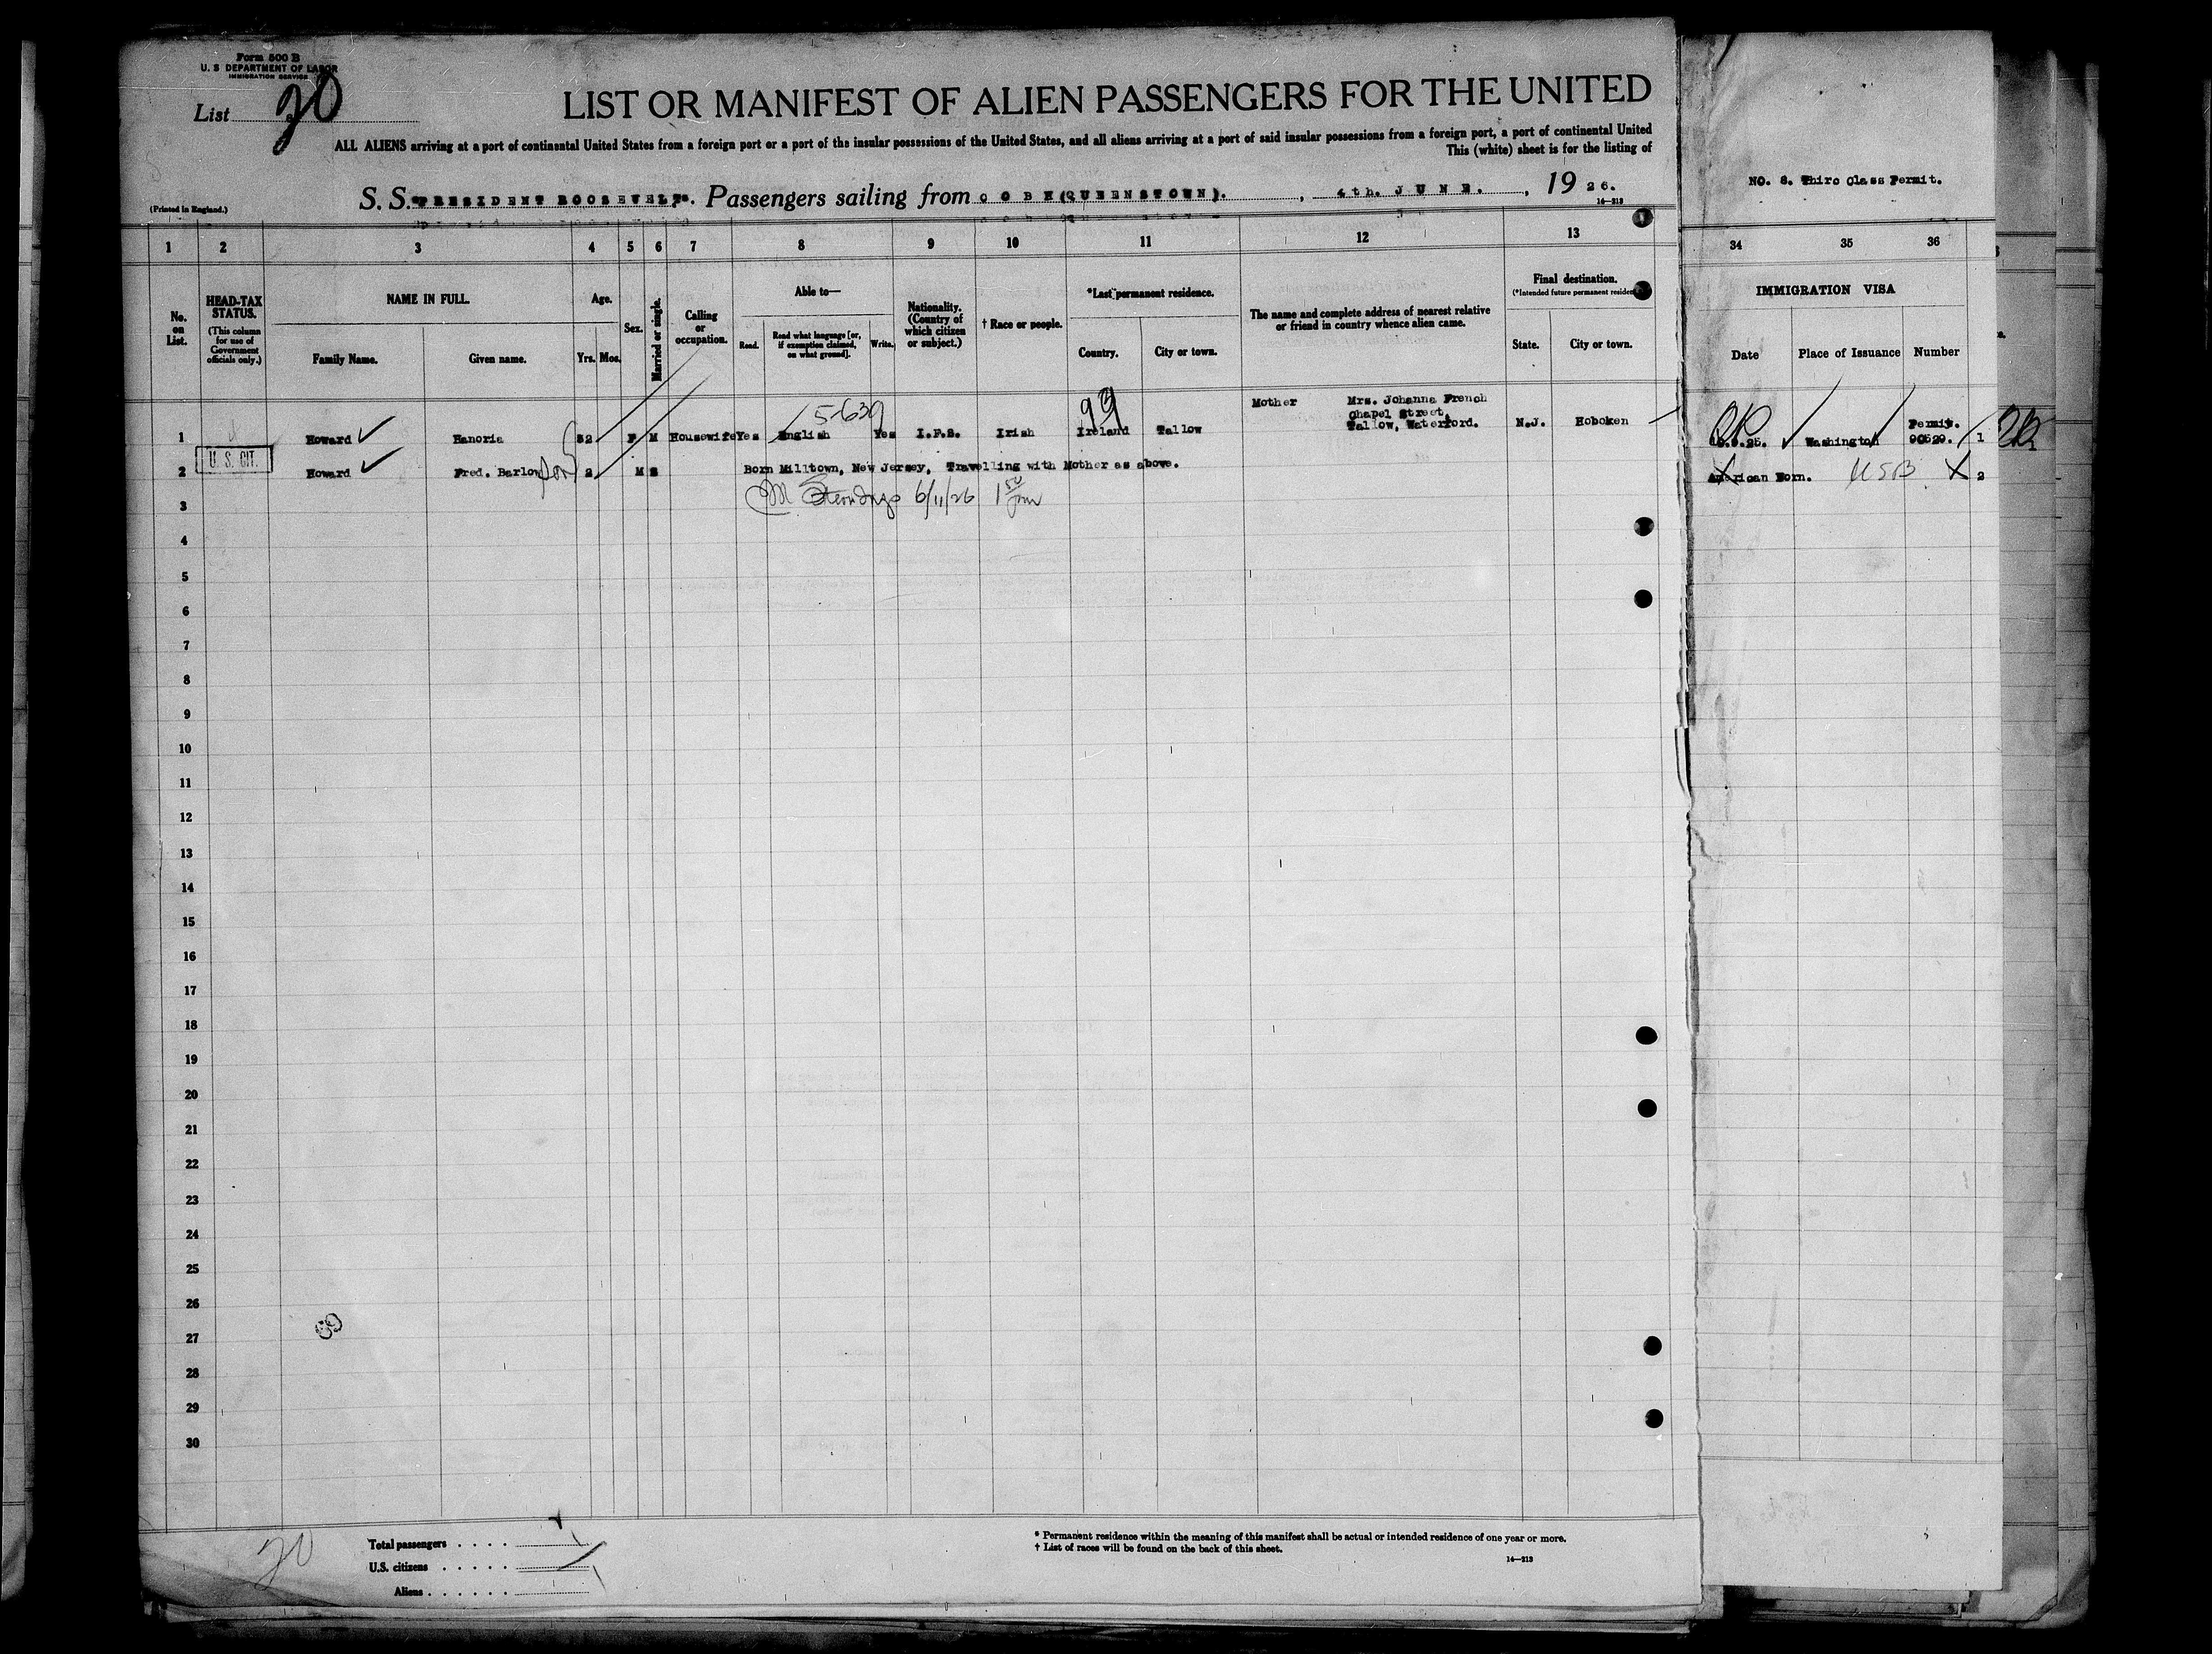 Form 500 B
U. S DEPARTMENT OF LABOR
IMMIGRATION SERVICE
List 20
LIST OR MANIFEST OF ALIEN PASSENGERS FOR THE UNITED
ALL ALIENS arriving at a port of continental United States from a foreign port or a port of the insular possessions of the United States, and all aliens arriving at a port of said insular possessions from a foreign port, a port of continental United
This (white) sheet is for the listing of
(Printed in England.)
S. S. "PRESIDENT ROOSEVELT". Passengers sailing from COBH(QUEENSTOWN). , 4th. JUNE. , 19 26.
14—213
NO. 8. Third Class Permit.
1 2 3 4 5 6 7 8 9 10 11 12 13 34 35 36
No. on List.
HEAD-TAX STATUS.
(This column for use of Government officials only.)
NAME IN FULL.
Family Name. Given name.
Age.
Yrs. Mos.
Sex.
Married or single.
Calling or occupation.
Able to—
Read. Read what language [or, if exemption claimed, on what ground]. Write.
Nationality. (Country of which citizen or subject.)
† Race or people.
*Last permanent residence.
Country. City or town.
The name and complete address of nearest relative or friend in country whence alien came.
Final destination.
(*Intended future permanent residence)
State. City or town.
IMMIGRATION VISA
Date Place of Issuance Number
5-639
99
1 Howard Hanoria 32 F M Housewife Yes English Yes I.F.S. Irish Ireland Tallow Mother Mrs. Johanna French
Chapel Street,
Tallow, Waterford. N.J. Hoboken .9.25. Washington Permit. 90529. 1
U. S. CIT.
2 Howard Fred. Barlow son 2 M S Born Milltown, New Jersey, Travelling with Mother as above. American Born. USB X 2
6/11/26 1 50 pm
3
4
5
6
7
8
9
10
11
12
13
14
15
16
17
18
19
20
21
22
23
24
25
26
27
28
29
30
20
Total passengers . . . .
U.S. citizens . . . . .
Aliens . . . . . .
* Permanent residence within the meaning of this manifest shall be actual or intended residence of one year or more.
† List of races will be found on the back of this sheet.
14—213